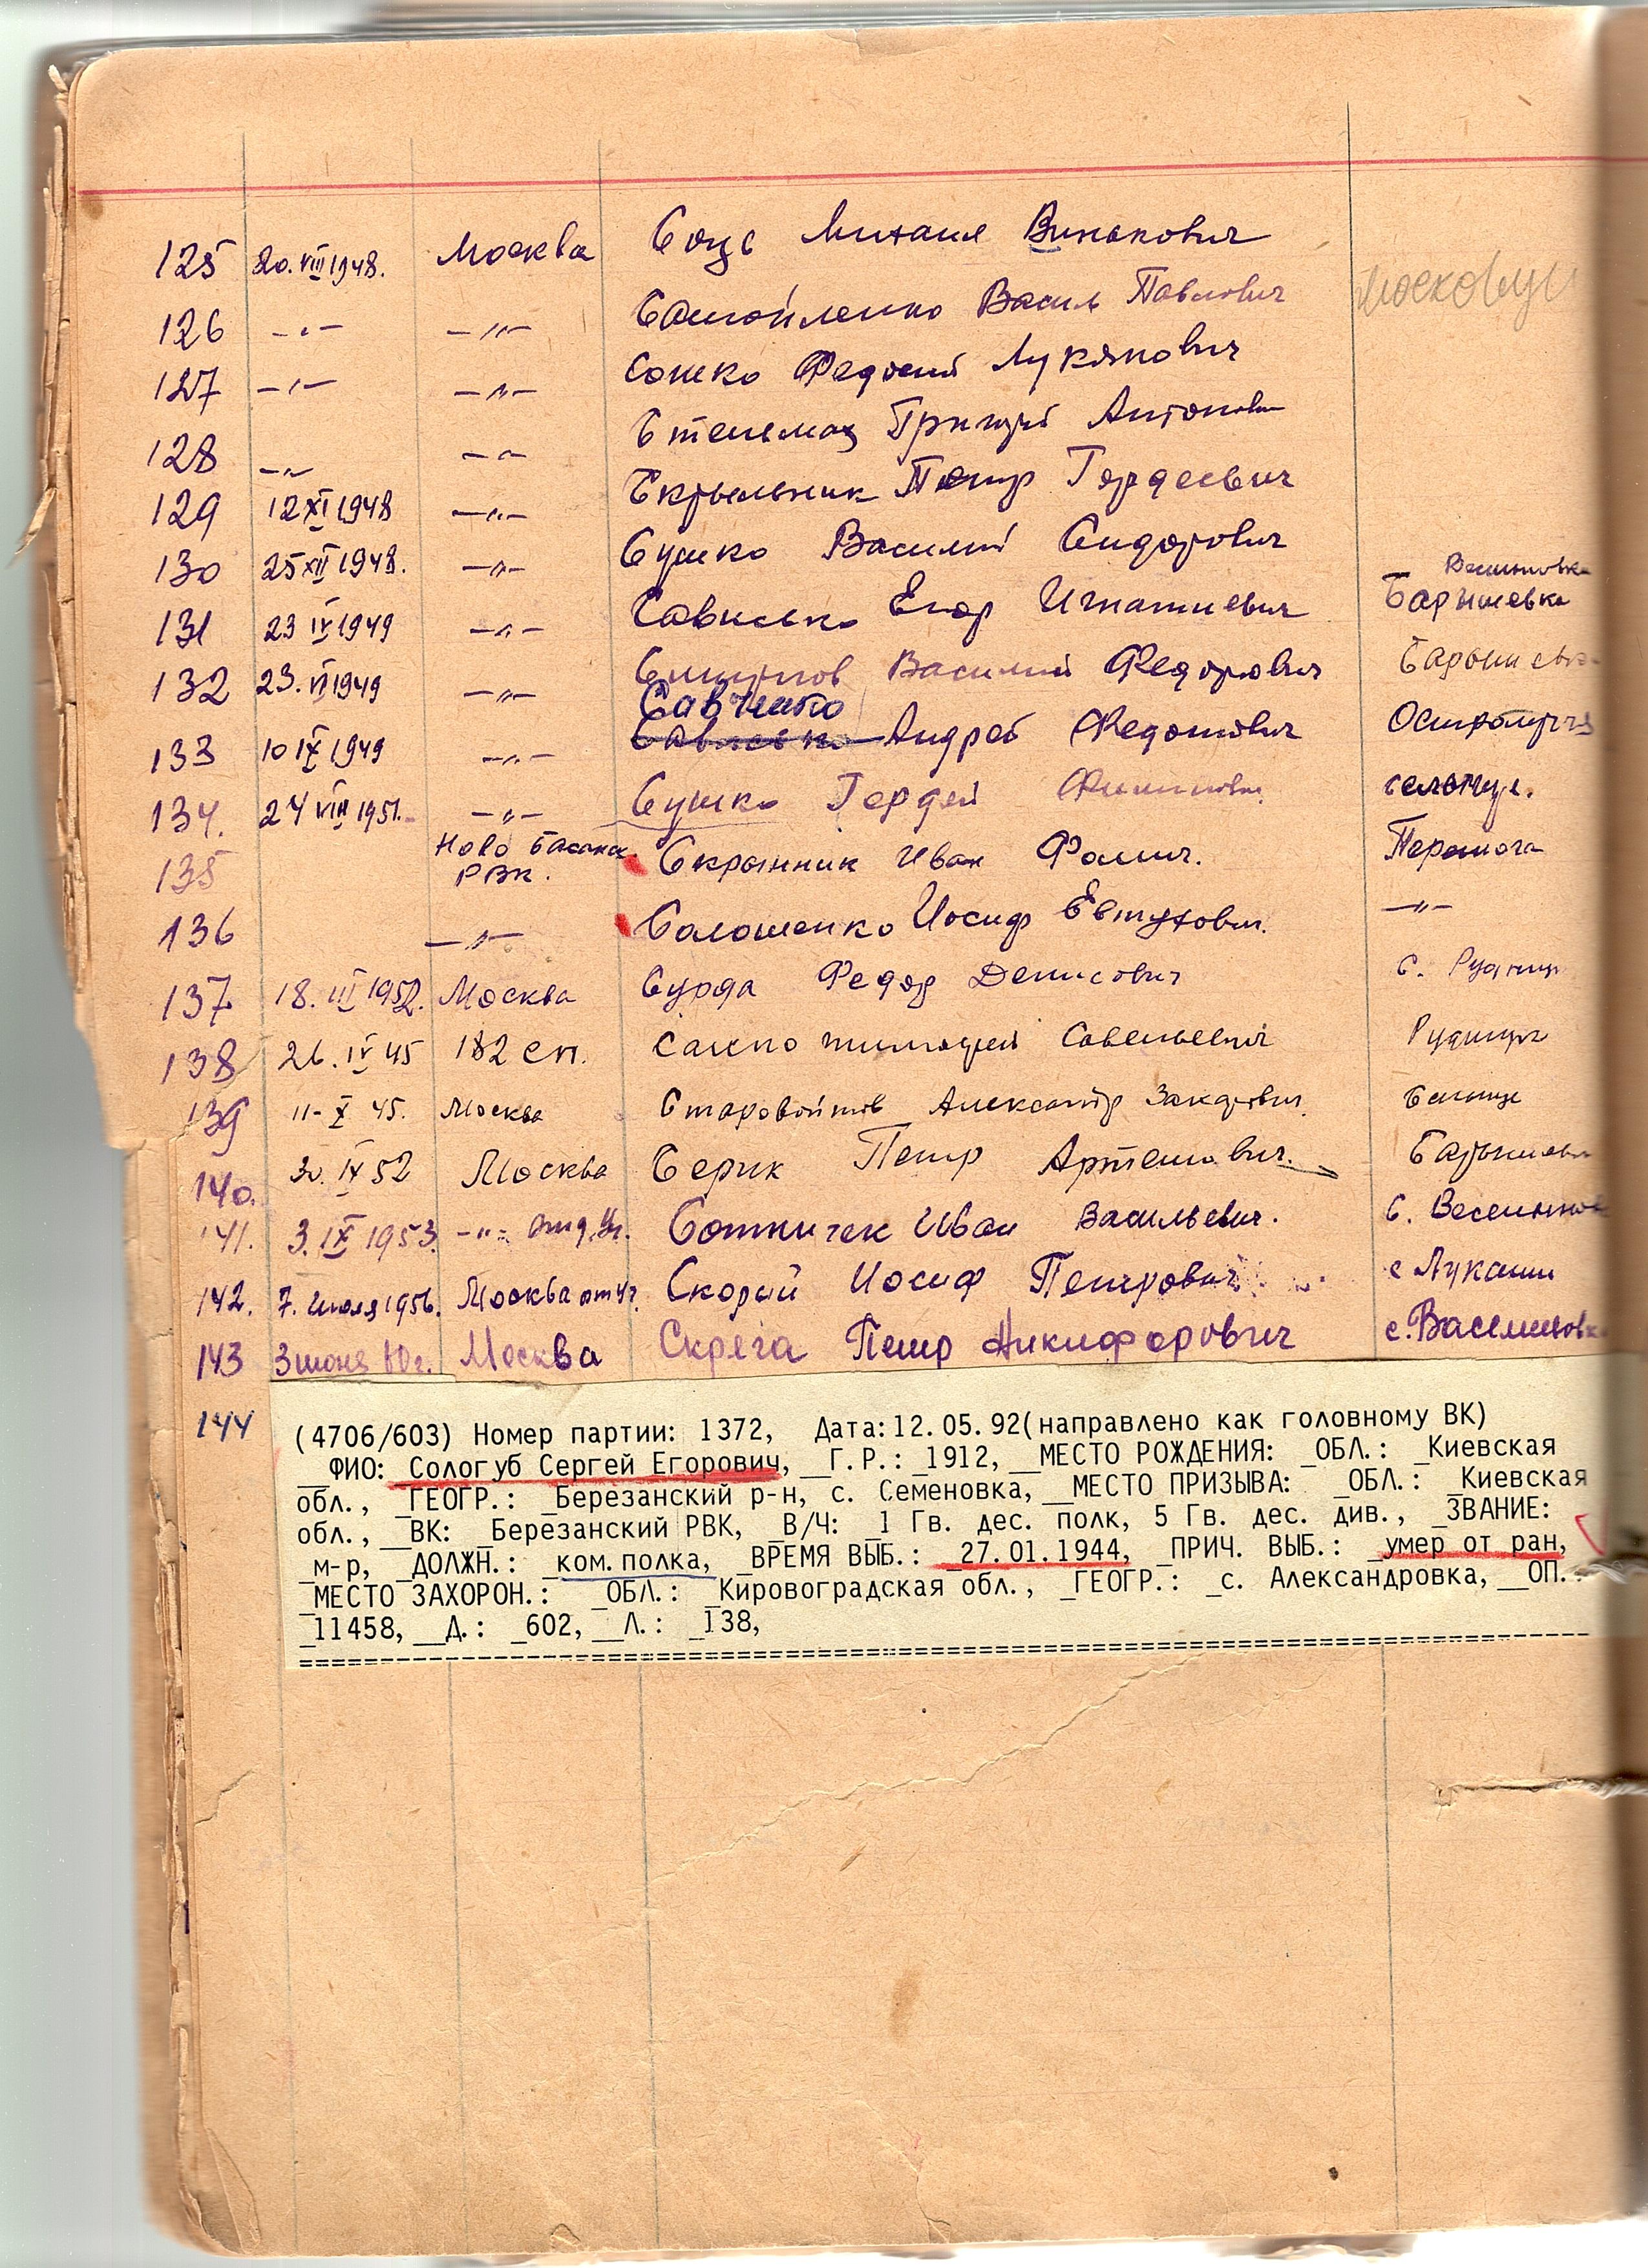 125 20.VIII 1948. Москва Соус Михаил Винокович
126 -"- -"- Самойленко Василь Павлович
127 -"- -"- Сошко Федосий Лукянович
128 -"- -"- Стельмах Григорий Антонови
129 12 XI 1948 -"- Скрыльник Петр Гордеевич
130 25 XII 1948. -"- Сушко Василий Сидорович
131 23 IV 1949 -"- Сависько Егор Игнатиевич Барышевка
132 23. VI 1949 -"- Василий Федорович Барыш
133 10 IX 1949 -"- Савченко Андрей Федотович
134. 24 VIII 1951. -"- Сушко Гордей
135 Ново Басанск РВК. Скрынник Иван Фомич. Перемога
136 -"- Солошенко Иосиф Евтухович. -"-
137 18. III 1952. Москва Сурда Федор Денисович с. Рудниц
138 26. IV 45 182 сп. Савельевич Рудниця
139 11- X 45. Москва Старовойтов Александр Захарович.
140. 30. IX 52 Москва Серик Петр Артемович. Барышевк
141. 3. IX 1953. -"- Сотничек Иван Васильевич. с.
142. 7. Июля 1956. Москва Скорый Иосиф Петрович с Лукаши
143 3 июня 60г. Москва Скряга Петр Никифорович с. Василиовк
144 (4706/603) Номер партии: 1372, Дата:12.05.92(направлено как головному ВК)
__ФИО:_Сологуб Сергей Егорович,__Г.Р.:_1912,__МЕСТО РОЖДЕНИЯ: _ОБЛ.:_Киевская
обл.,__ГЕОГР.:_Березанский р-н, с. Семеновка,__МЕСТО ПРИЗЫВА: _ОБЛ.:_Киевская
обл.,__ВК:_Березанский РВК,__В/Ч:_1 Гв. дес. полк, 5 Гв. дес. див.,_ЗВАНИЕ:
_м-р,_ДОЛЖН.:_ком.полка,_ВРЕМЯ ВЫБ.:_27.01.1944,_ПРИЧ. ВЫБ.:_умер от ран,
_МЕСТО ЗАХОРОН.: _ОБЛ.:_Кировоградская обл.,_ГЕОГР.:_с. Александровка,__ОП.:
_11458,__Д.:_602,__Л.:_138,